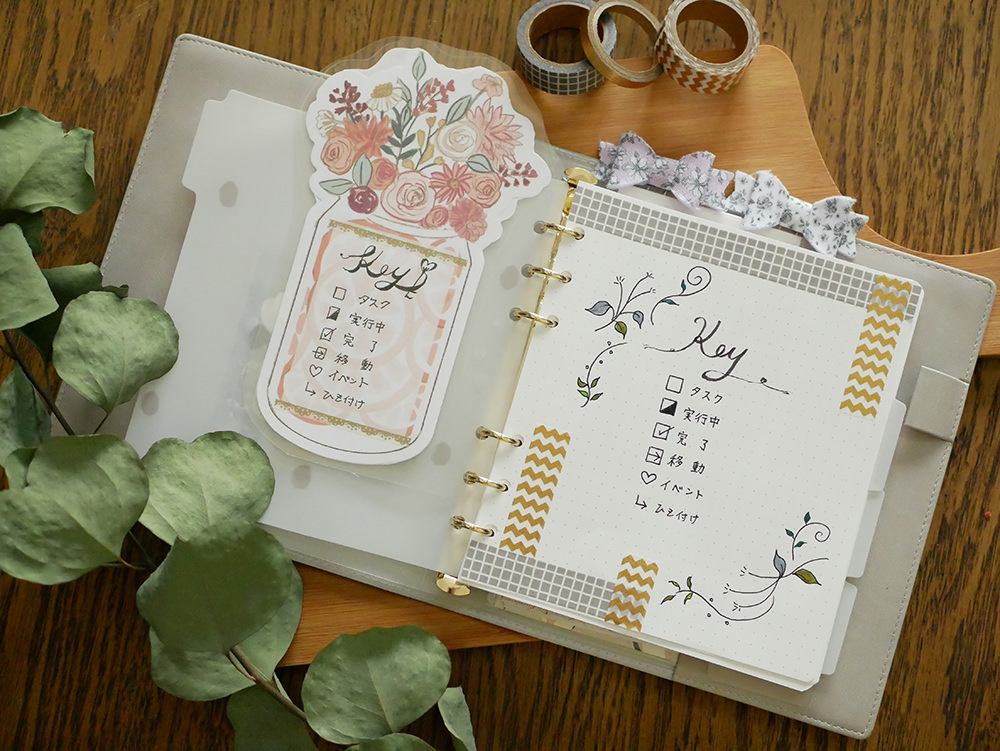 Key
□ タスク
◪ 実行中
☑ 完了
⍈ 移動
♡ イベント
↳ ひも付け
Key
□ タスク
◪ 実行中
☑ 完了
⍈ 移動
♡ イベント
↳ ひも付け